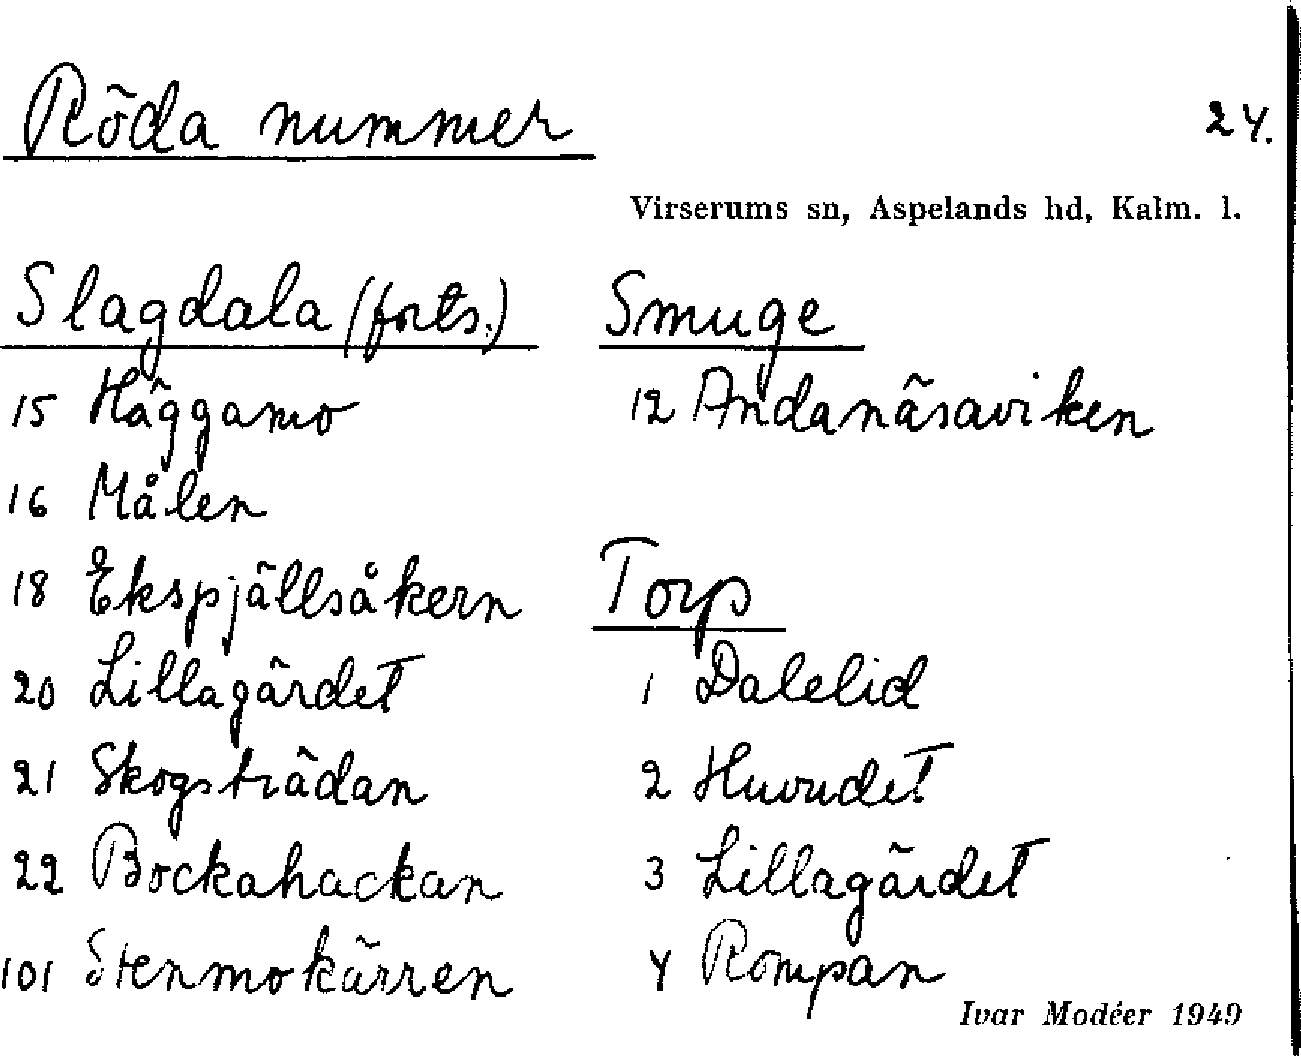 Röda nummer
24.
Virserums sn, Aspelands hd, Kalm. l.
Slagdala (forts.)
15 Häggamo
16 Målen
18 Ekspjällsåkern
20 Lillagärdet
21 Skogsträdan
22 Bockahackan
101 Stenmokärren
Smuge
12 Andanäsaviken
Torp
1 Dalelid
2 Huvudet
3 Lillagärdet
4 Rompan
Ivar Modéer 1949